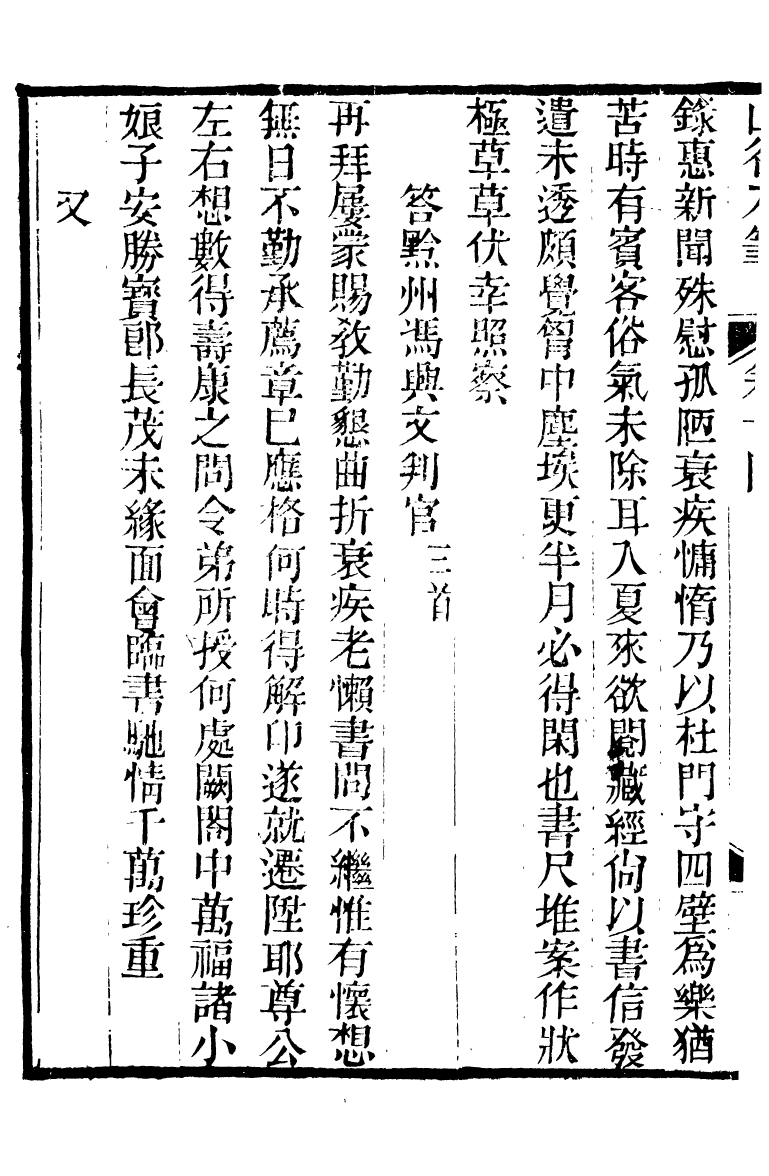 錄惠新聞殊慰孤陋衰疾慵惰乃以杜門守四壁爲樂猶
苦時有賓客俗氣未除耳入夏來欲閱藏經尙以書信發
遣未透頗覺胷中塵埃更半月必得閑也書尺堆案作狀
極草草伏幸照察
答黔州馮與文判官三首
再拜屢蒙賜教勤懇曲折衰疾老懶書問不繼惟有懷想
無日不勤承薦章已應格何時得解印遂就遷陞耶尊公
左右想數得壽康之問令弟所授何處闕閤中萬福諸小
娘子安勝寶郎長茂未緣面會臨書馳情千萬珍重
又